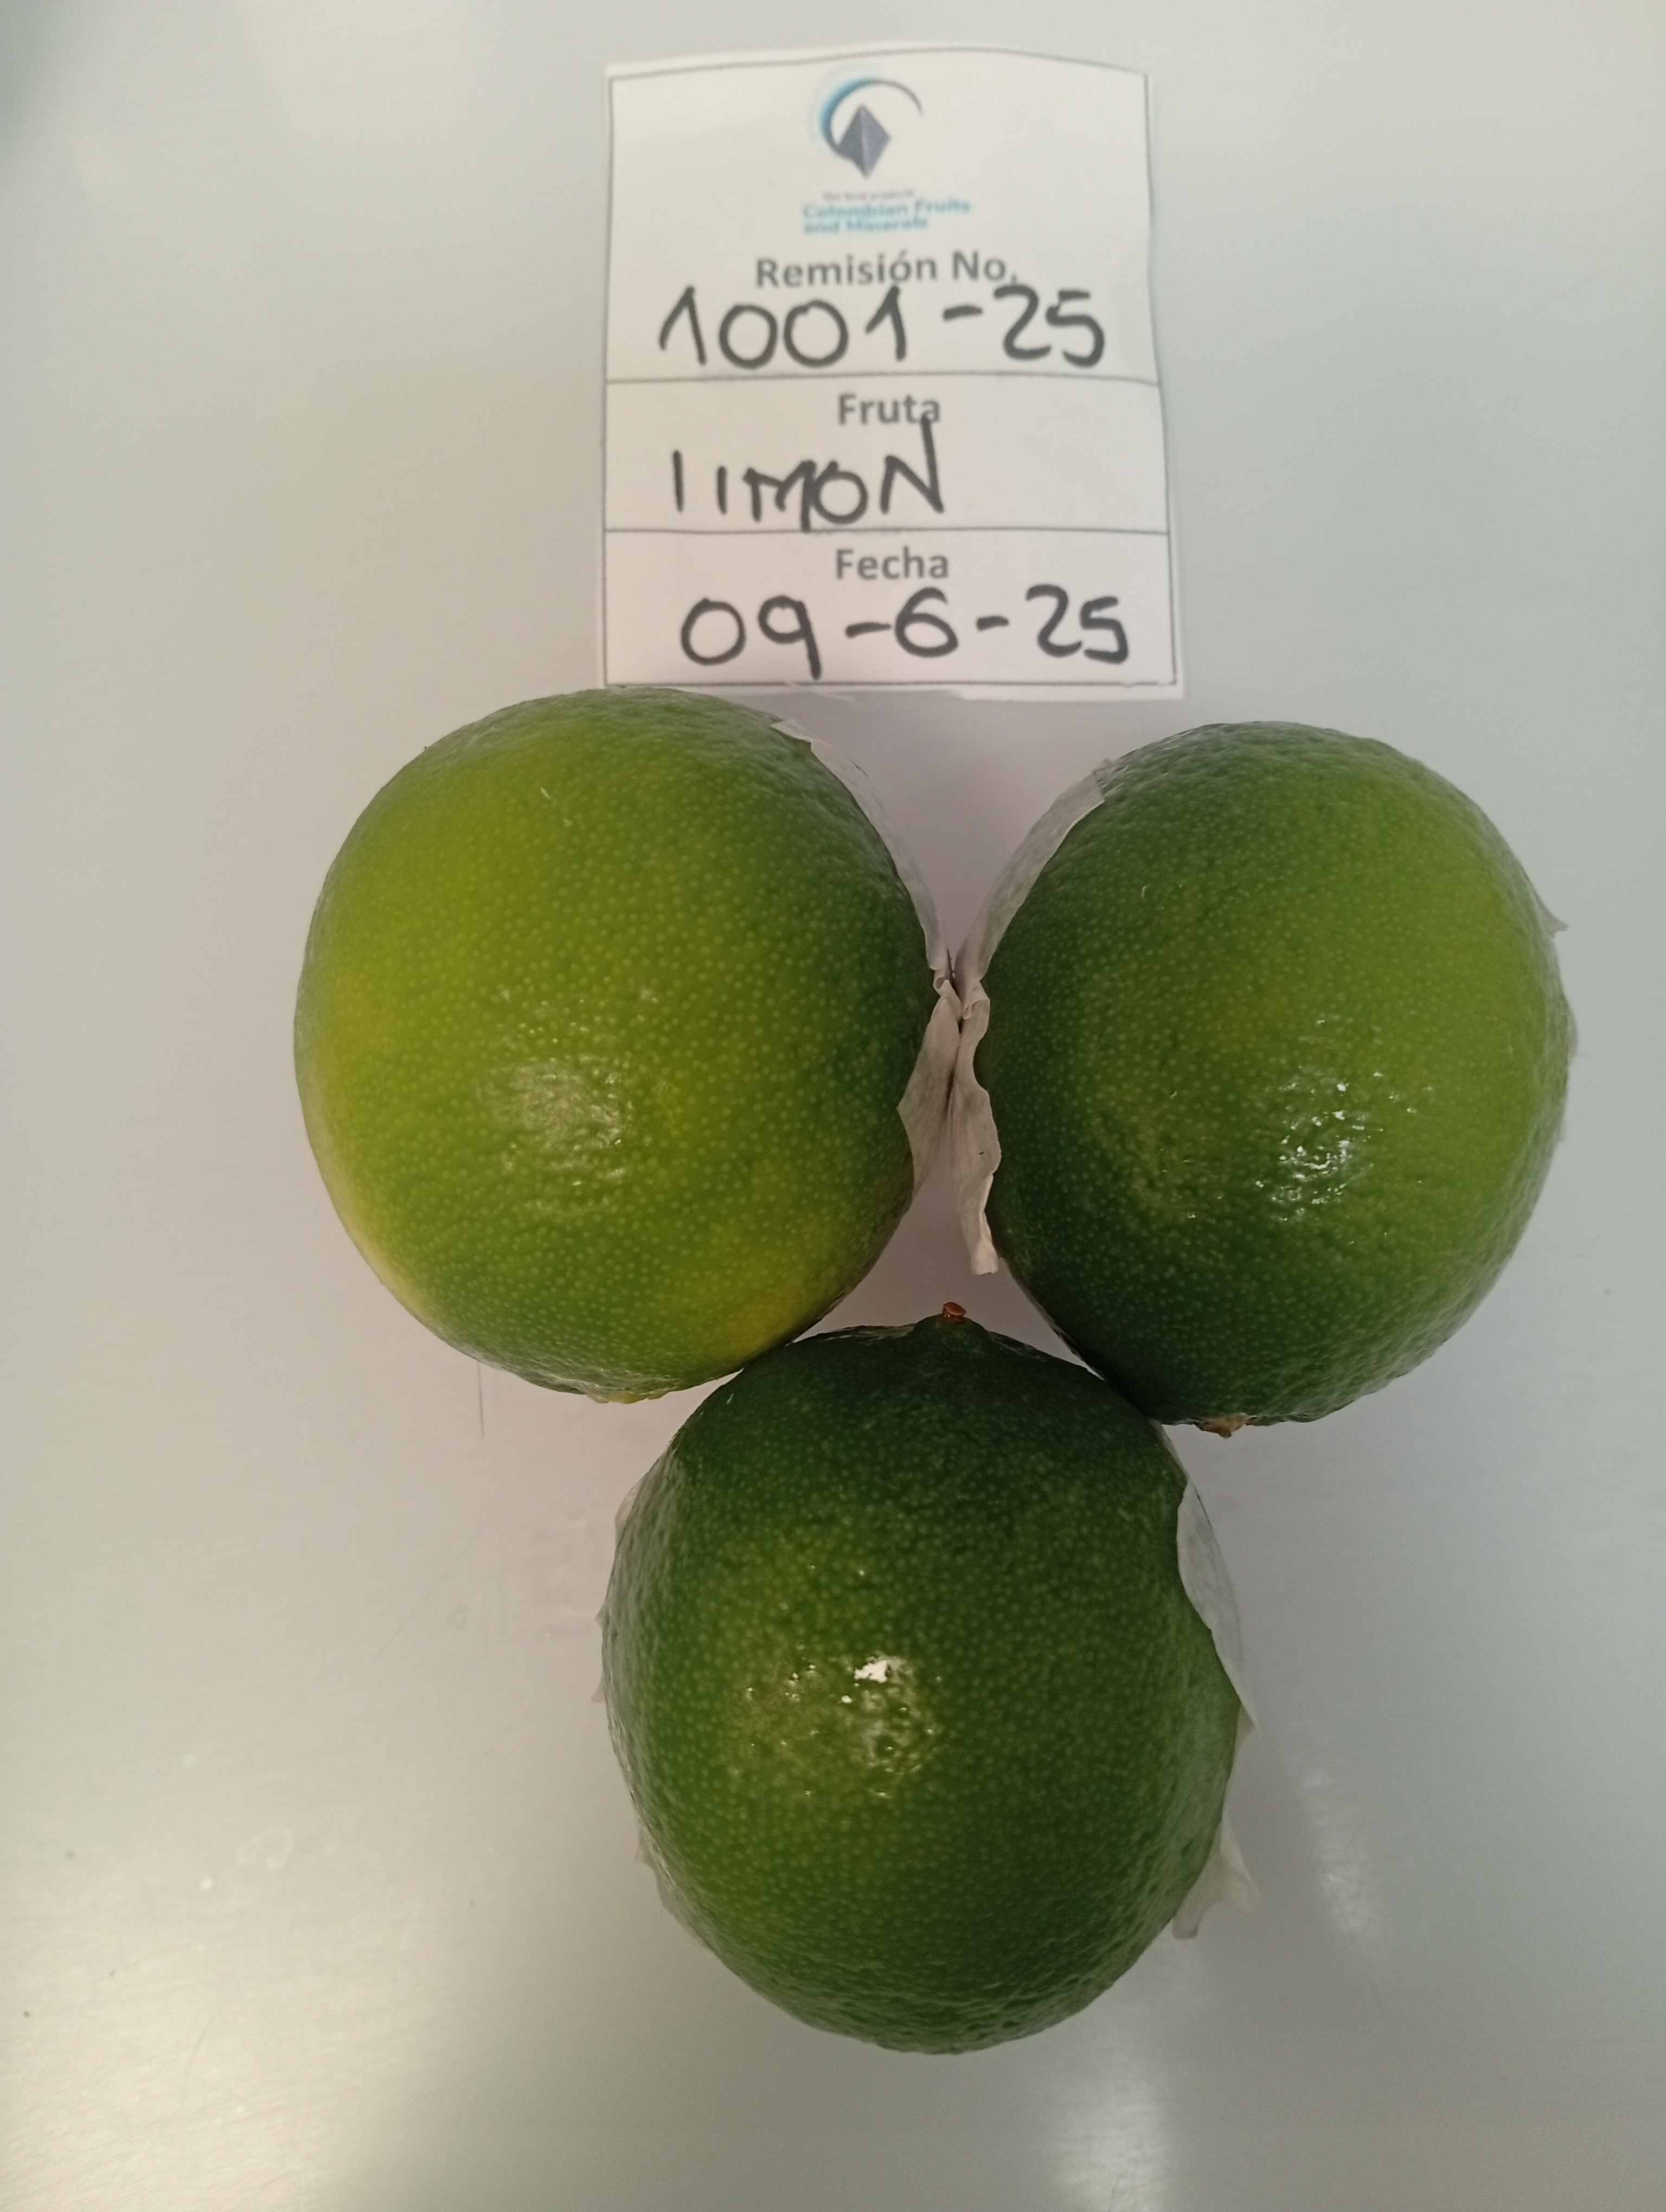 Colombian Fruits
and Minerals
Remisión No.
1001-25
Fruta
lIMON
Fecha
09-6-25